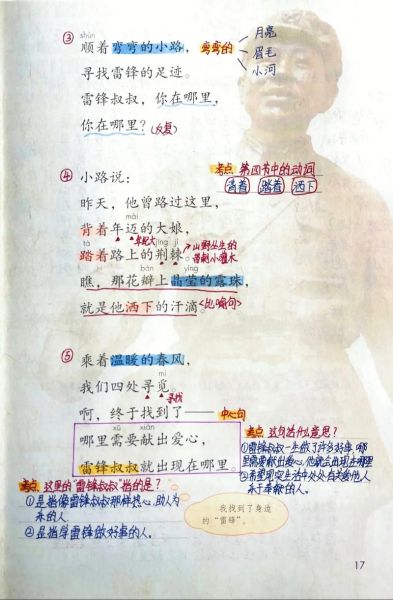 shùn
③ 顺着弯弯的小路，弯弯的 月亮 眉毛 小河
寻找雷锋的足迹。
雷锋叔叔，你在哪里，
你在哪里？(反复)
考点 第四节中的动词
背着 踏着 洒下
④ 小路说：
昨天，他曾路过这里，
mài
背着年迈的大娘，
年纪大
tà jīng jí
踏着路上的荆棘。
山野丛生的带刺小灌木
bàn yíng
瞧，那花瓣上晶莹的露珠，
就是他洒下的汗滴。<比喻句>
⑤ 乘着温暖的春风，
mì
我们四处寻觅。
寻找
啊，终于找到了—— 中心句
xū xiàn
哪里需要献出爱心，
雷锋叔叔就出现在哪里。
考点 这句话什么意思？
①雷锋叔叔一生做了许多好事，哪
里需要献出爱心，他就会出现在哪里
②希望现实生活中处处有关爱他人
乐于奉献的人。
考点 这里的"雷锋叔叔"指的是？
①是指像雷锋叔叔那样热心，助人为
乐的人.
②是指学雷锋做好事的人。
我找到了身边
的"雷锋"。
17